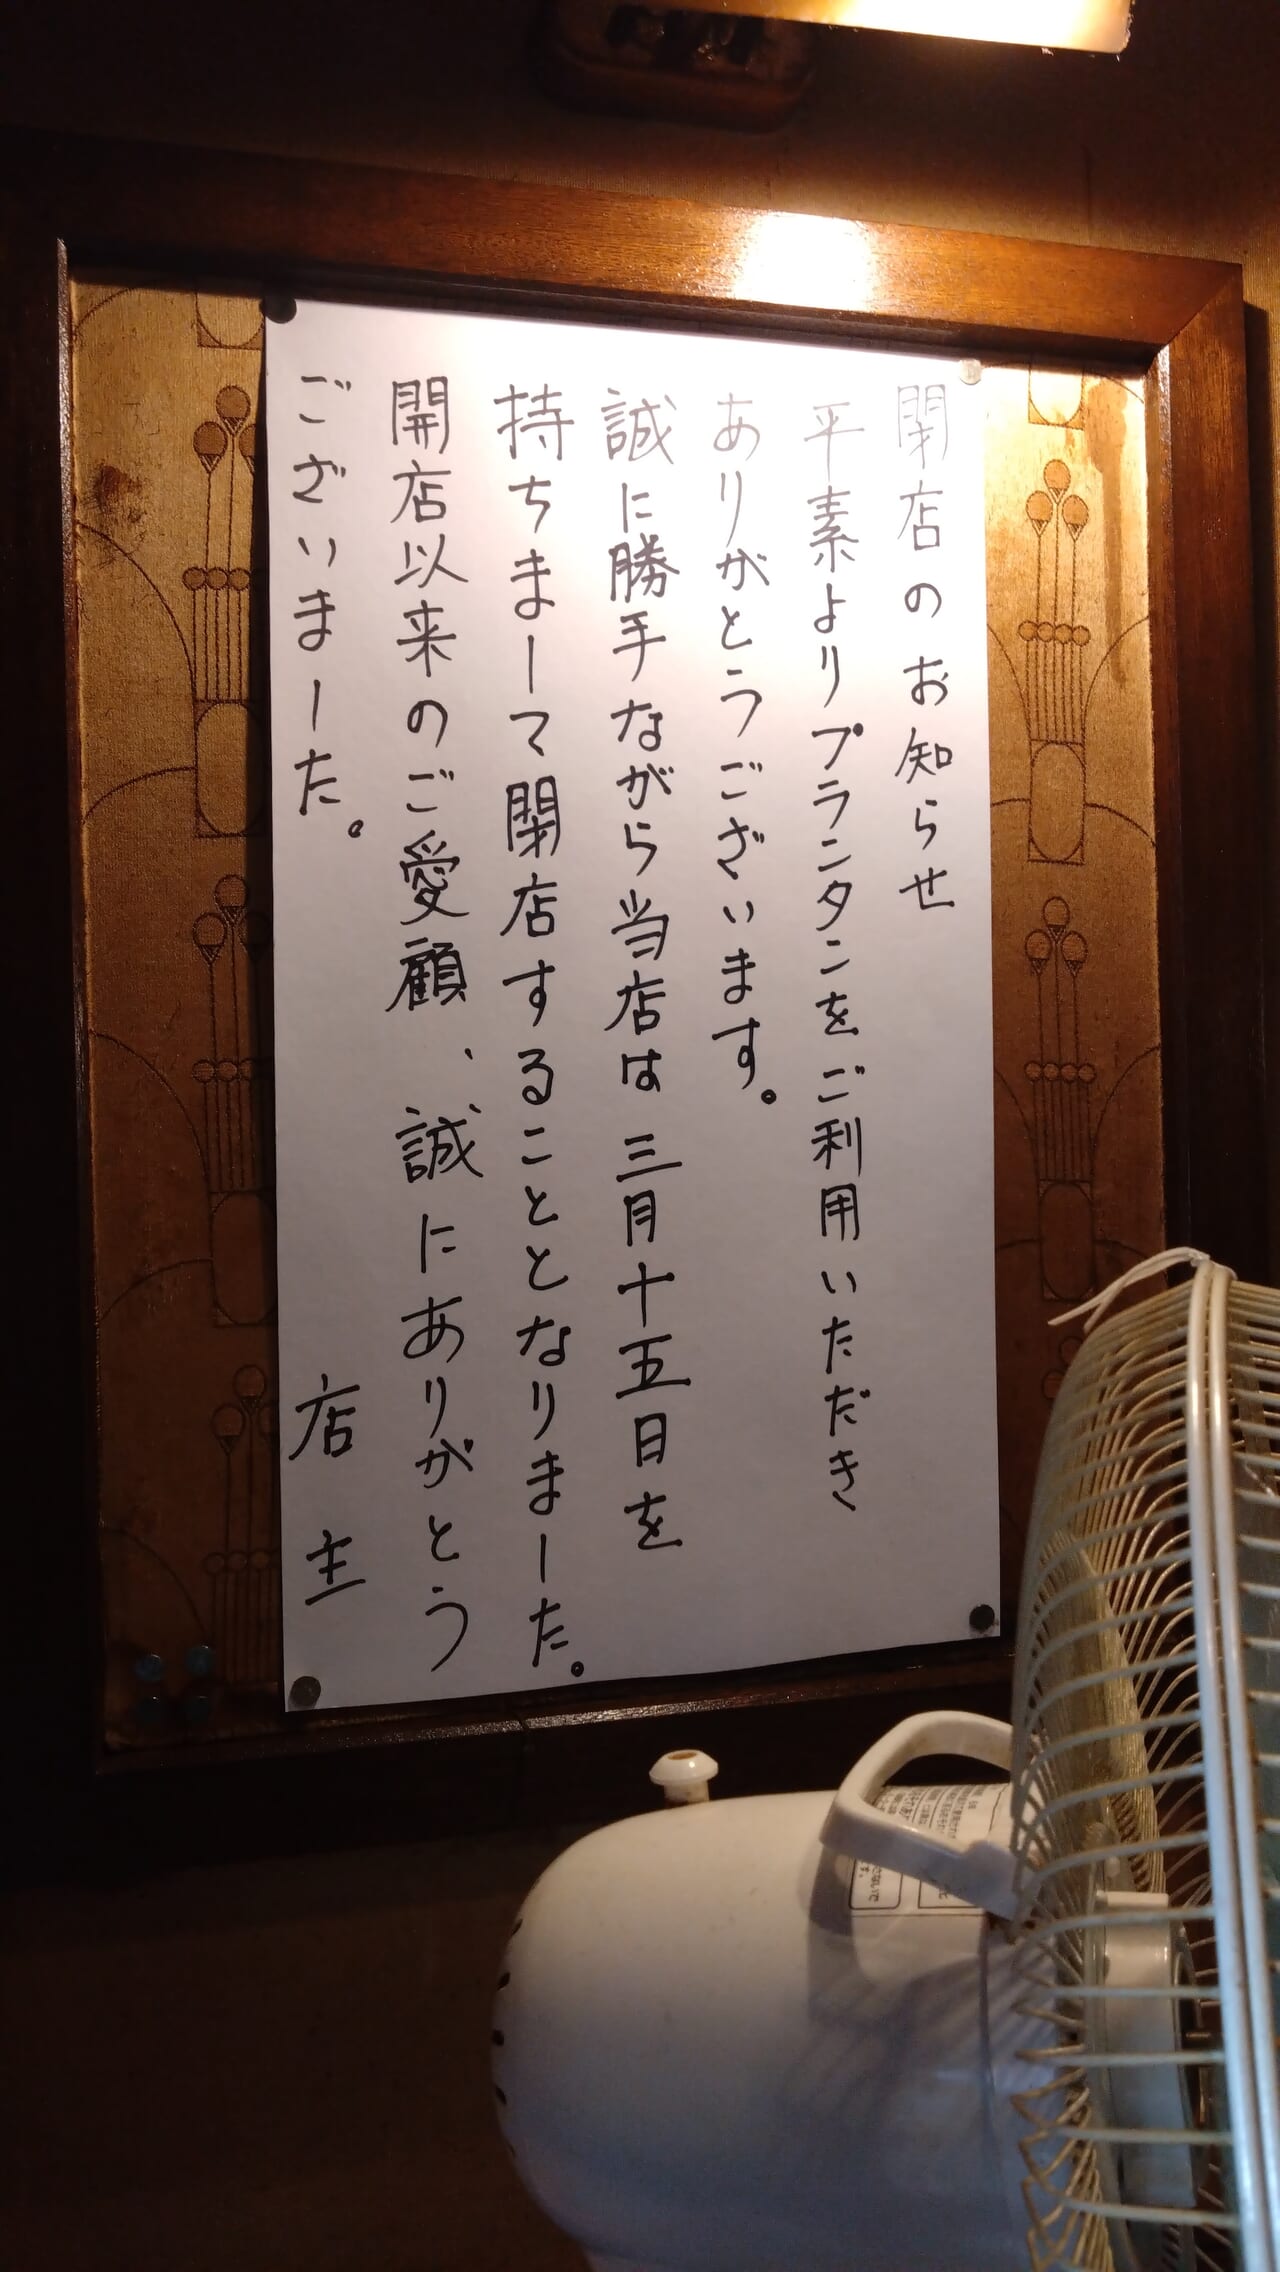 閉店のお知らせ
平素よりプランタンをご利用いただき
ありがとうございます。
誠に勝手ながら当店は三月十五日を
持ちまして閉店することとなりました。
開店以来のご愛顧、誠にありがとう
ございました。
店主